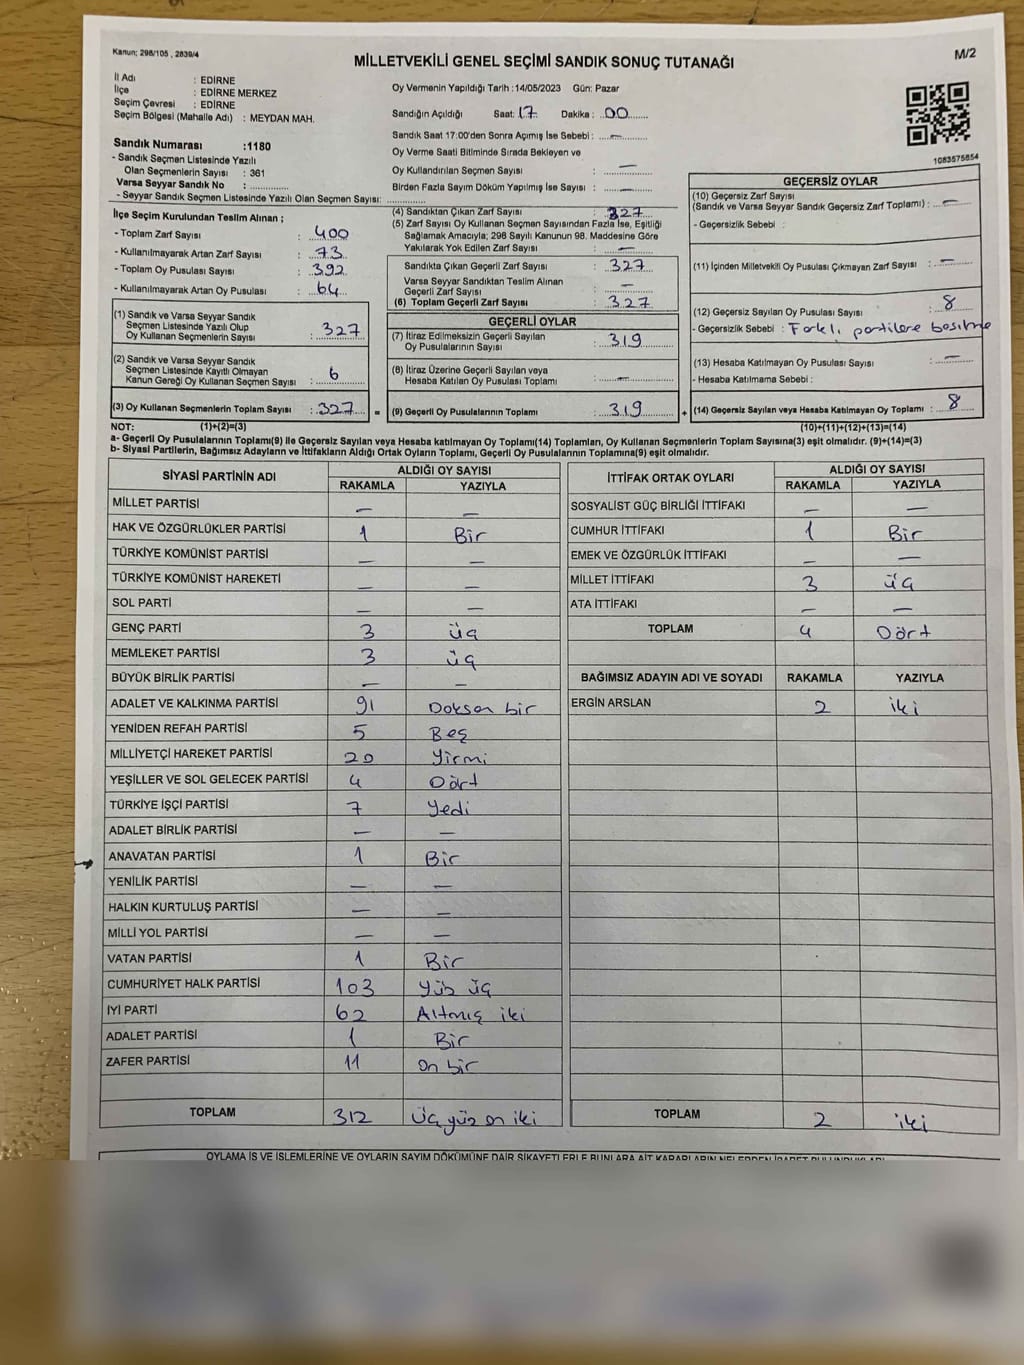 Kanun; 298/105 , 2839/4
MİLLETVEKİLİ GENEL SEÇİMİ SANDIK SONUÇ TUTANAĞI
M/2
İl Adı : EDİRNE
İlçe : EDİRNE MERKEZ
Seçim Çevresi : EDİRNE
Seçim Bölgesi (Mahalle Adı) : MEYDAN MAH.
Sandık Numarası :1180
- Sandık Seçmen Listesinde Yazılı
Olan Seçmenlerin Sayısı : 361
Varsa Seyyar Sandık No : ..............
- Seyyar Sandık Seçmen Listesinde Yazılı Olan Seçmen Sayısı: ..............
Oy Vermenin Yapıldığı Tarih :14/05/2023 Gün: Pazar
Sandığın Açıldığı Saat: 17 Dakika : 00
Sandık Saat 17:00'den Sonra Açımış İse Sebebi : —
Oy Verme Saati Bitiminde Sırada Bekleyen ve
Oy Kullandırılan Seçmen Sayısı : —
Birden Fazla Sayım Döküm Yapılmış İse Sayısı : —
1083575854
İlçe Seçim Kurulundan Teslim Alınan ;
- Toplam Zarf Sayısı : 400
- Kullanılmayarak Artan Zarf Sayısı : 73
- Toplam Oy Pusulası Sayısı : 392
- Kullanılmayarak Artan Oy Pusulası : 64
(1) Sandık ve Varsa Seyyar Sandık
Seçmen Listesinde Yazılı Olup
Oy Kullanan Seçmenlerin Sayısı : 327
(2) Sandık ve Varsa Seyyar Sandık
Seçmen Listesinde Kayıtlı Olmayan
Kanun Gereği Oy Kullanan Seçmen Sayısı : 6
(3) Oy Kullanan Seçmenlerin Toplam Sayısı : 327 =
(4) Sandıktan Çıkan Zarf Sayısı : 327
(5) Zarf Sayısı Oy Kullanan Seçmen Sayısından Fazla İse, Eşitliği
Sağlamak Amacıyla; 298 Sayılı Kanunun 98. Maddesine Göre
Yakılarak Yok Edilen Zarf Sayısı : —
Sandıkta Çıkan Geçerli Zarf Sayısı : 327
Varsa Seyyar Sandıktan Teslim Alınan
Geçerli Zarf Sayısı : —
(6) Toplam Geçerli Zarf Sayısı : 327
GEÇERLİ OYLAR
(7) İtiraz Edilmeksizin Geçerli Sayılan
Oy Pusulalarının Sayısı : 319
(8) İtiraz Üzerine Geçerli Sayılan veya
Hesaba Katılan Oy Pusulası Toplamı : —
(9) Geçerli Oy Pusulalarının Toplamı : 319 +
GEÇERSİZ OYLAR
(10) Geçersiz Zarf Sayısı
(Sandık ve Varsa Seyyar Sandık Geçersiz Zarf Toplamı) : —
- Geçersizlik Sebebi :
(11) İçinden Milletvekili Oy Pusulası Çıkmayan Zarf Sayısı : —
(12) Geçersiz Sayılan Oy Pusulası Sayısı : 8
- Geçersizlik Sebebi : Farklı partilere basılma
(13) Hesaba Katılmayan Oy Pusulası Sayısı : —
- Hesaba Katılmama Sebebi :
(14) Geçersiz Sayılan veya Hesaba Katılmayan Oy Toplamı : 8
NOT: (1)+(2)=(3) (10)+(11)+(12)+(13)=(14)
a- Geçerli Oy Pusulalarının Toplamı(9) ile Geçersiz Sayılan veya Hesaba katılmayan Oy Toplamı(14) Toplamları, Oy Kullanan Seçmenlerin Toplam Sayısına(3) eşit olmalıdır. (9)+(14)=(3)
b- Siyasi Partilerin, Bağımsız Adayların ve İttifakların Aldığı Ortak Oyların Toplamı, Geçerli Oy Pusulalarının Toplamına(9) eşit olmalıdır.
SİYASİ PARTİNİN ADI ALDIĞI OY SAYISI
RAKAMLA YAZIYLA
MİLLET PARTİSİ — —
HAK VE ÖZGÜRLÜKLER PARTİSİ 1 Bir
TÜRKİYE KOMÜNİST PARTİSİ — —
TÜRKİYE KOMÜNİST HAREKETİ — —
SOL PARTİ — —
GENÇ PARTİ 3 üç
MEMLEKET PARTİSİ 3 üç
BÜYÜK BİRLİK PARTİSİ — —
ADALET VE KALKINMA PARTİSİ 91 Doksan bir
YENİDEN REFAH PARTİSİ 5 Beş
MİLLİYETÇİ HAREKET PARTİSİ 20 Yirmi
YEŞİLLER VE SOL GELECEK PARTİSİ 4 Dört
TÜRKİYE İŞÇİ PARTİSİ 7 Yedi
ADALET BİRLİK PARTİSİ — —
ANAVATAN PARTİSİ 1 Bir
YENİLİK PARTİSİ — —
HALKIN KURTULUŞ PARTİSİ — —
MİLLİ YOL PARTİSİ — —
VATAN PARTİSİ 1 Bir
CUMHURİYET HALK PARTİSİ 103 Yüz üç
İYİ PARTİ 62 Altmış iki
ADALET PARTİSİ 1 Bir
ZAFER PARTİSİ 11 On bir
TOPLAM 312 Üç yüz on iki
İTTİFAK ORTAK OYLARI ALDIĞI OY SAYISI
RAKAMLA YAZIYLA
SOSYALİST GÜÇ BİRLİĞİ İTTİFAKI — —
CUMHUR İTTİFAKI 1 Bir
EMEK VE ÖZGÜRLÜK İTTİFAKI — —
MİLLET İTTİFAKI 3 üç
ATA İTTİFAKI — —
TOPLAM 4 Dört
BAĞIMSIZ ADAYIN ADI VE SOYADI RAKAMLA YAZIYLA
ERGİN ARSLAN 2 iki
TOPLAM 2 iki
OYLAMA İŞ VE İŞLEMLERİNE VE OYLARIN SAYIM DÖKÜMÜNE DAİR ŞİKAYETLERLE BUNLARA AİT KARARLARIN